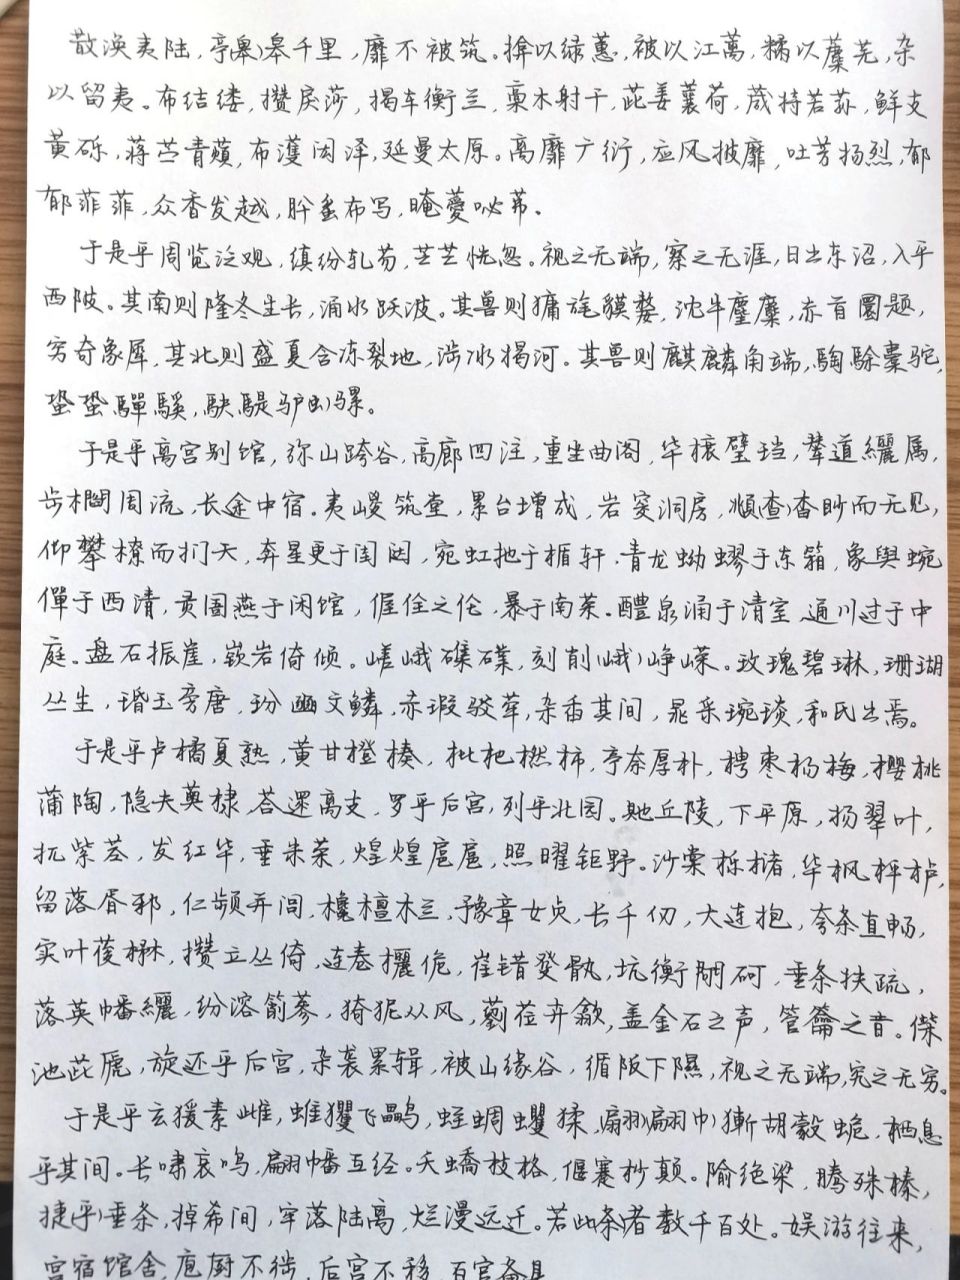 散涣夷陆,亭(皋)皋千里,靡不被筑。揜以绿蕙,被以江蓠,糅以蘪芜,杂
以留夷。布结缕,攒戾莎,揭车衡兰,槀本射干,茈姜蘘荷,葴持若荪,鲜支
黄砾,蒋苎青薠,布濩闳泽,延曼太原。离靡广衍,应风披靡,吐芳扬烈,郁
郁菲菲,众香发越,肸蚃布写,晻薆咇茀。
于是乎周览泛观,缜纷轧芴,芒芒恍忽。视之无端,察之无涯,日出东沼,入乎
西陂。其南则隆冬生长,涌水跃波。其兽则㺎旄貘嫠,沈牛麈麋,赤首圜题,
穷奇象犀,其北则盛夏含冻裂地,涉冰揭河。其兽则麒麟角端,騊駼橐驼,
蛩蛩驒騱,駃騠驴骡。
于是乎离宫别馆,弥山跨谷,高廊四注,重坐曲阁,华榱璧珰,辇道纚属,
步櫩周流,长途中宿。夷嵕筑堂,累台增成,岩窔洞房,頫杳杳眇而无见,
仰攀橑而扪天,奔星更于闺闼,宛虹扡于楯轩,青龙蚴蟉于东箱,象舆蜿
僤于西清,灵圄燕于闲馆,偓佺之伦,暴于南荣。醴泉涌于清室,通川过于中
庭。盘石振崖,嵚岩倚倾。嵯峨磼礏,刻削(峨)峥嵘。玫瑰碧琳,珊瑚
丛生,瑉玉旁唐,玢豳文鳞,赤瑕驳荦,杂臿其间,晁采琬琰,和氏出焉。
于是乎卢橘夏熟,黄甘橙楱,枇杷橪柿,亭奈厚朴,梬枣杨梅,樱桃
蒲陶,隐夫薁棣,荅遝离支,罗乎后宫,列乎北园。貤丘陵,下平原,扬翠叶,
扤紫茎,发红华,垂朱荣,煌煌扈扈,照曜钜野。沙棠栎槠,华枫枰栌,
留落胥邪,仁频并闾,欃檀木兰,豫章女贞,长千仞,大连抱,夸条直畅,
实叶葰楙,攒立丛倚,连卷欐佹,崔错癹骫,坑衡閜砢,垂条扶疏,
落英幡纚,纷溶箾蔘,猗狔从风,藰莅卉歙,盖金石之声,管籥之音。偨
池茈虒,旋还乎后宫,杂袭累辑,被山缘谷,循阪下隰,视之无端,究之无穷。
于是乎玄猨素雌,蜼玃飞鸓,蛭蜩蠼猱,獑胡豰蛫,栖息
乎其间。长啸哀鸣,翩幡互经。夭蟜枝格,偃蹇杪颠。隃绝梁,腾殊榛,
捷(乎)垂条,掉希间,牢落陆离,烂漫远迁。若此者数千百处。娱游往来,
宫宿馆舍,庖厨不徙,后宫不移,百官备具